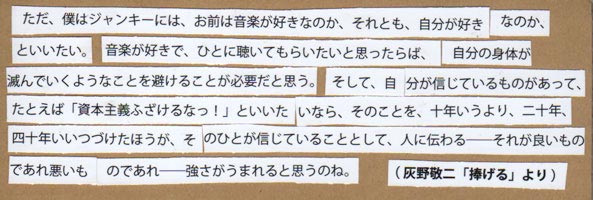 ただ、僕はジャンキーには、お前は音楽が好きなのか、それとも、自分が好き なのか、
といいたい。 音楽が好きで、ひとに聴いてもらいたいと思ったらば、 自分の身体が
滅んでいくようなことを避けることが必要だと思う。 そして、自 分が信じているものがあって、
たとえば「資本主義ふざけるなっ！」といいた いなら、そのことを、十年いうより、二十年、
四十年いいつづけたほうが、そ のひとが信じていることとして、人に伝わる――それが良いもの
であれ悪いも のであれ――強さがうまれると思うのね。 （灰野敬二「捧げる」より）